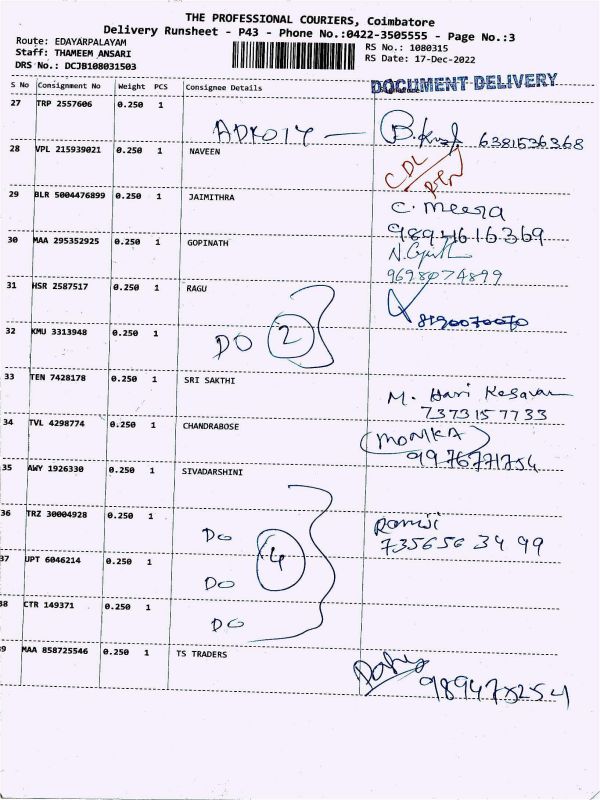 THE PROFESSIONAL COURIERS, Coimbatore
Delivery Runsheet - P43 - Phone No.:0422-3505555 - Page No.:3
Route: EDAYARPALAYAM RS No.: 1080315
Staff: THAMEEM ANSARI RS Date: 17-Dec-2022
DRS No.: DCJB108031503
DOCUMENT DELIVERY
S No Consignment No Weight PCS Consignee Details
27 TRP 2557606 0.250 1
6381536368
28 VPL 215939021 0.250 1 NAVEEN
29 BLR 5004476899 0.250 1 JAIMITHRA C. meera
30 MAA 295352925 0.250 1 GOPINATH
9698074899
31 HSR 2587517 0.250 1 RAGU
32 KMU 3313948 0.250 1 DO 2
33 TEN 7428178 0.250 1 SRI SAKTHI M. Hari Kesavan
7373157733
34 TVL 4298774 0.250 1 CHANDRABOSE (MONIKA)
9976771754
35 AWY 1926330 0.250 1 SIVADARSHINI
36 TRZ 30004928 0.250 1 DO Ramji
735656 34 99
37 UPT 6046214 0.250 1 DO 4
38 CTR 149371 0.250 1 DO
39 MAA 858725546 0.250 1 TS TRADERS